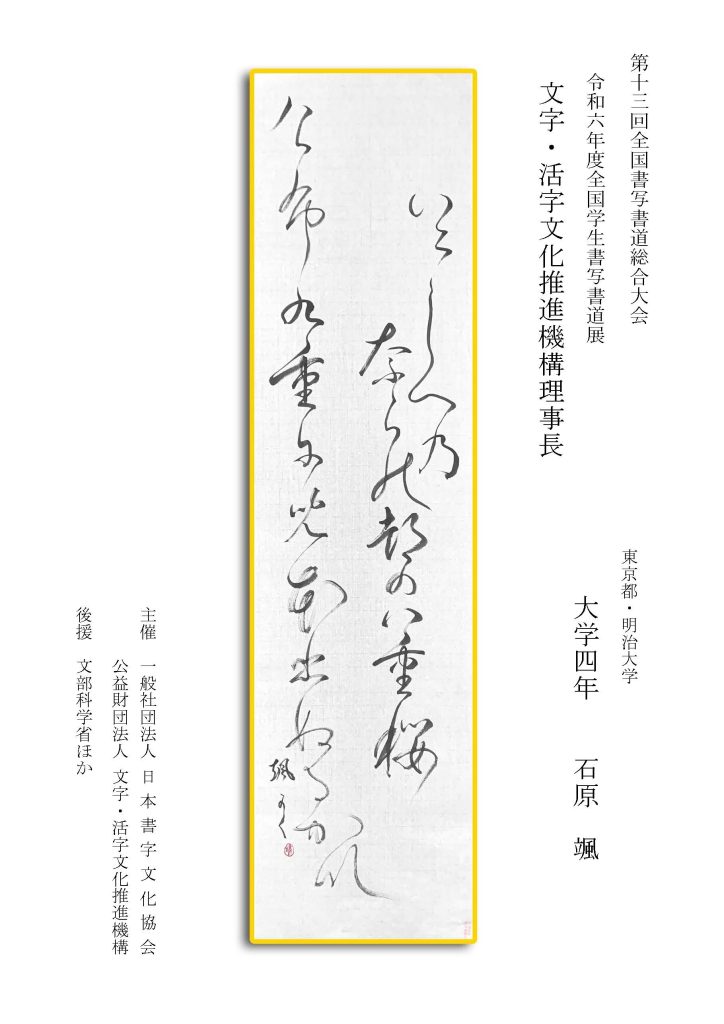 第十三回全国書写書道総合大会
令和六年度全国学生書写書道展
文字・活字文化推進機構理事長
東京都・明治大学
大学四年　石原　颯
いにしへ乃
奈らの都の八重櫻
布九重尓
ぬる可
颯
主催　一般社団法人 日本書字文化協会
公益財団法人 文字・活字文化推進機構
後援　文部科学省ほか